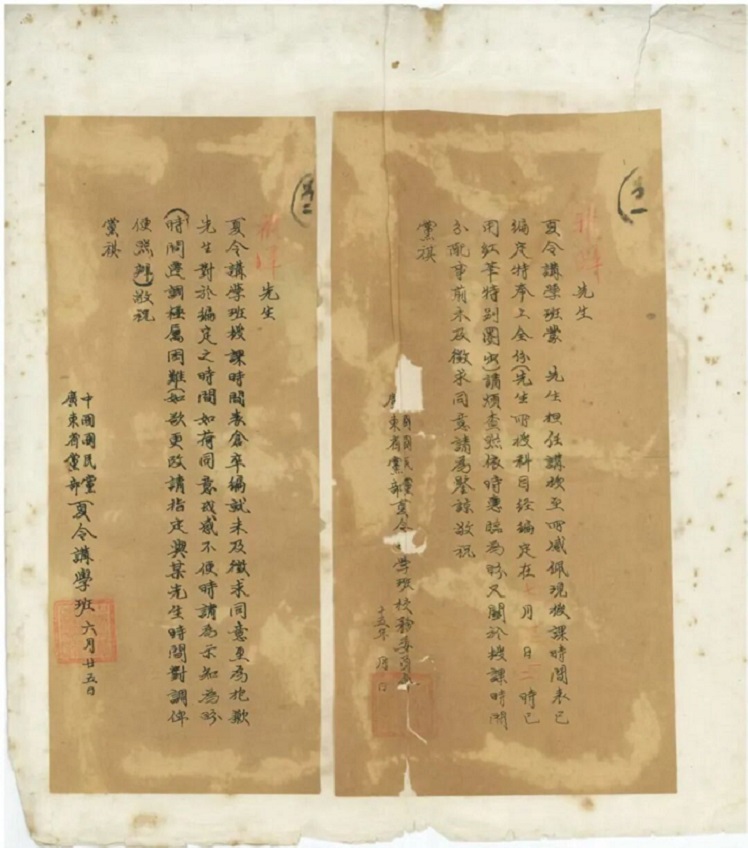 先生
夏令講學班業 先生担任講授至所感佩現授課時間表已
編定特奉上全份(先生所授科目經編定在七月 日 時已
用紅筆特別圈出)請煩查照依時惠臨為盼又關於授課時間
分配事前未及徵求同意請為鑒諒敬祝
黨祺
國民黨
廣東省黨部夏令 學班校務委員
十五年 月 日
先生
夏令講學班授課時間表倉卒編就未及徵求同意至為抱歉
先生對於編定之時間如荷同意或感不便時請為示知為盼
(時間遷調極屬困難)如欲更改請指定與某先生時間對調俾
便照辦)敬祝
黨祺
中國國民黨
廣東省黨部夏令講學班六月廿五日